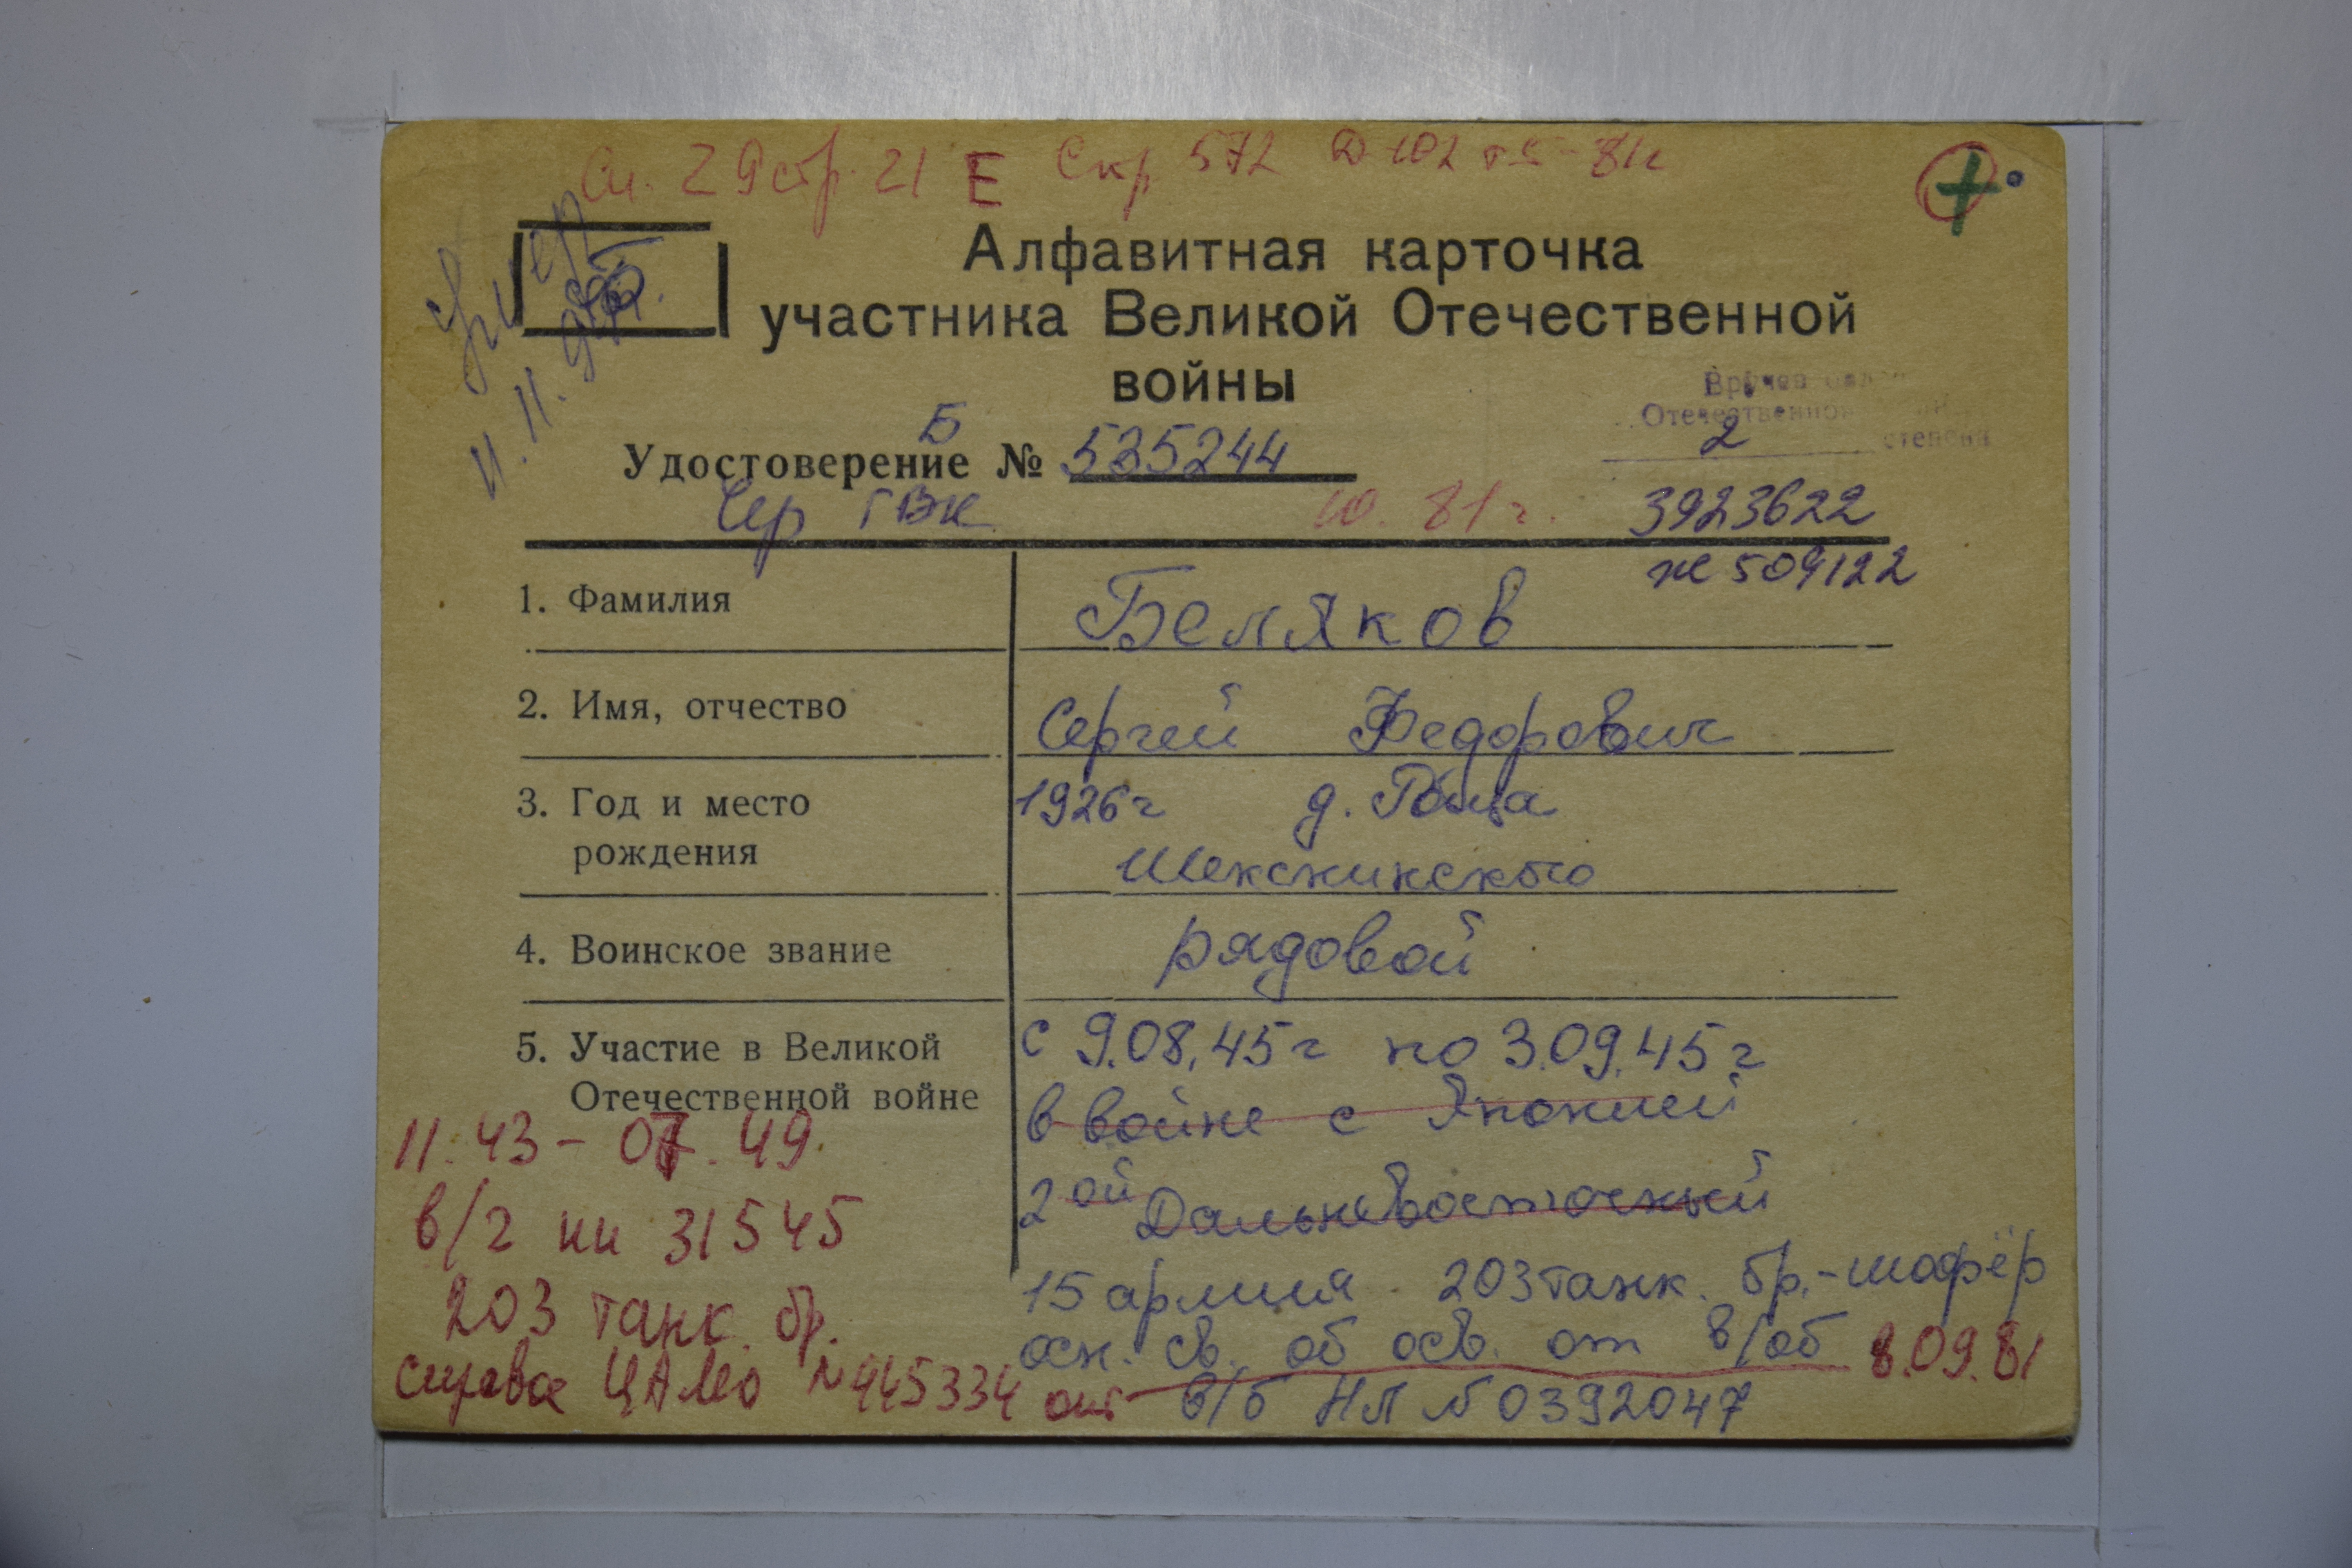 стр. 21 Е Скр 572 102 81г
умер
11. 11.
Алфавитная карточка
участника Великой Отечественной
войны
Вручен
Отечественной
2 степени
Удостоверение Б № 535244
Чер ГВК 10. 81 г. 3923622
№ 509122
1. Фамилия Беляков
2. Имя, отчество Сергей Федорович
3. Год и место рождения 1926г д.
Шекснинского
4. Воинское звание рядовой
5. Участие в Великой Отечественной войне с 9.08.45г по 3.09.45г
в войне с Японией
2ой Дальневосточный
15 армия 203 танк. бр. - шофёр
осн. св. об осв. от в/об
в/б НЛ № 0392047
11.43 - 07.49
в/г 31545
203 танк. бр.
справка ЦАМО N 445334 от 8.09.81